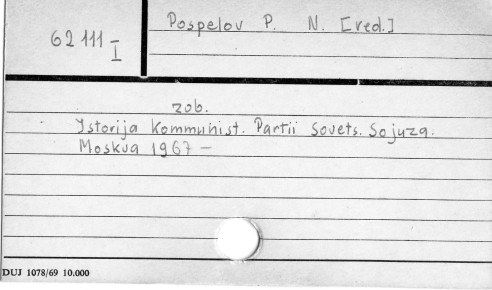 62111
I
Pospelov P. N. [red.]
zob.
Istorija Kommunist. Partii Sovets. Sojuza.
Moskva 1967 —
DUJ 1078/69 10.000